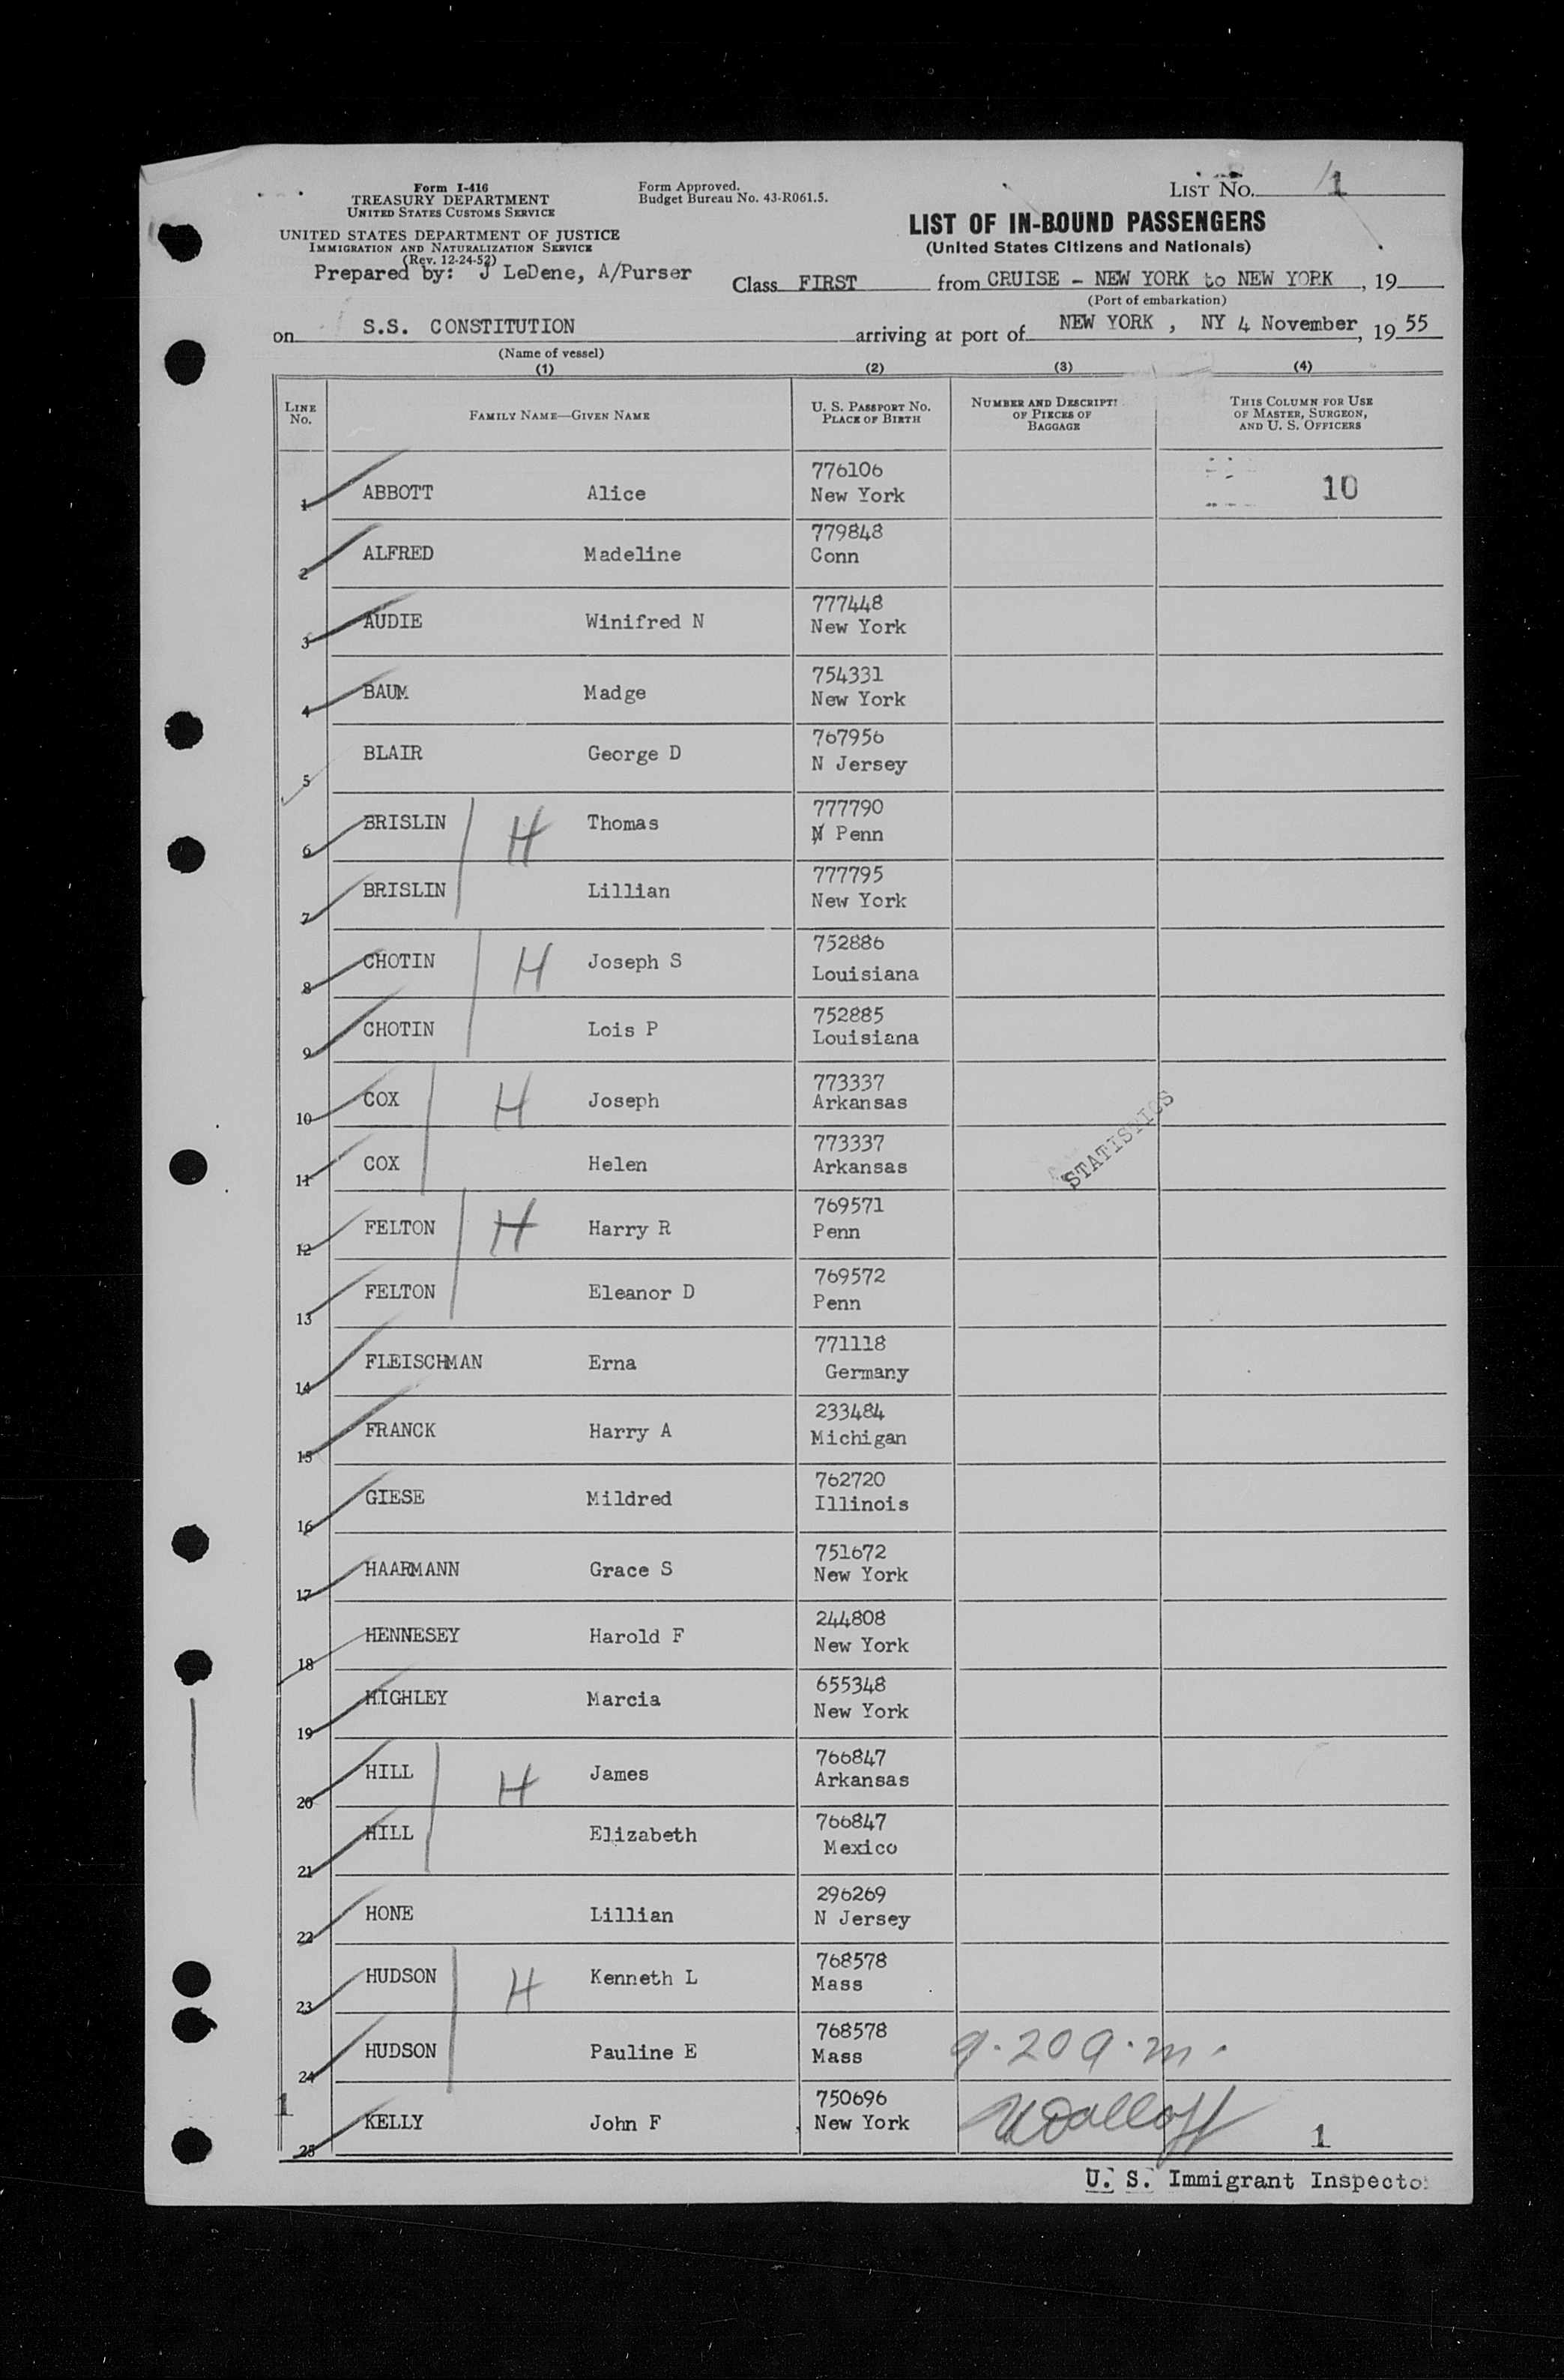 Form I-416
TREASURY DEPARTMENT
UNITED STATES CUSTOMS SERVICE
UNITED STATES DEPARTMENT OF JUSTICE
IMMIGRATION AND NATURALIZATION SERVICE
(Rev. 12-24-52)
Form Approved.
Budget Bureau No. 43-R061.5.
LIST NO. 1
LIST OF IN-BOUND PASSENGERS
(United States Citizens and Nationals)
Prepared by: J LeDene, A/Purser
Class FIRST from CRUISE - NEW YORK to NEW YORK, 19
(Port of embarkation)
on S.S. CONSTITUTION arriving at port of NEW YORK, NY 4 November, 19 55
(Name of vessel)
(1) (2) (3) (4)
LINE NO. FAMILY NAME—GIVEN NAME U. S. PASSPORT NO. PLACE OF BIRTH NUMBER AND DESCRIPTI OF PIECES OF BAGGAGE THIS COLUMN FOR USE OF MASTER, SURGEON, AND U. S. OFFICERS
1 ABBOTT Alice 776106 New York 10
2 ALFRED Madeline 779848 Conn
3 AUDIE Winifred N 777448 New York
4 BAUM Madge 754331 New York
5 BLAIR George D 767956 N Jersey
6 BRISLIN H Thomas 777790 N Penn
7 BRISLIN Lillian 777795 New York
8 CHOTIN H Joseph S 752886 Louisiana
9 CHOTIN Lois P 752885 Louisiana
10 COX H Joseph 773337 Arkansas
11 COX Helen 773337 Arkansas
STATISTICS
12 FELTON H Harry R 769571 Penn
13 FELTON Eleanor D 769572 Penn
14 FLEISCHMAN Erna 771118 Germany
15 FRANCK Harry A 233484 Michigan
16 GIESE Mildred 762720 Illinois
17 HAARMANN Grace S 751672 New York
18 HENNESEY Harold F 244808 New York
19 HIGHLEY Marcia 655348 New York
20 HILL H James 766847 Arkansas
21 HILL Elizabeth 766847 Mexico
22 HONE Lillian 296269 N Jersey
23 HUDSON H Kenneth L 768578 Mass
24 HUDSON Pauline E 768578 Mass 9.20 a.m.
1
25 KELLY John F 750696 New York 1
U. S. Immigrant Inspecto